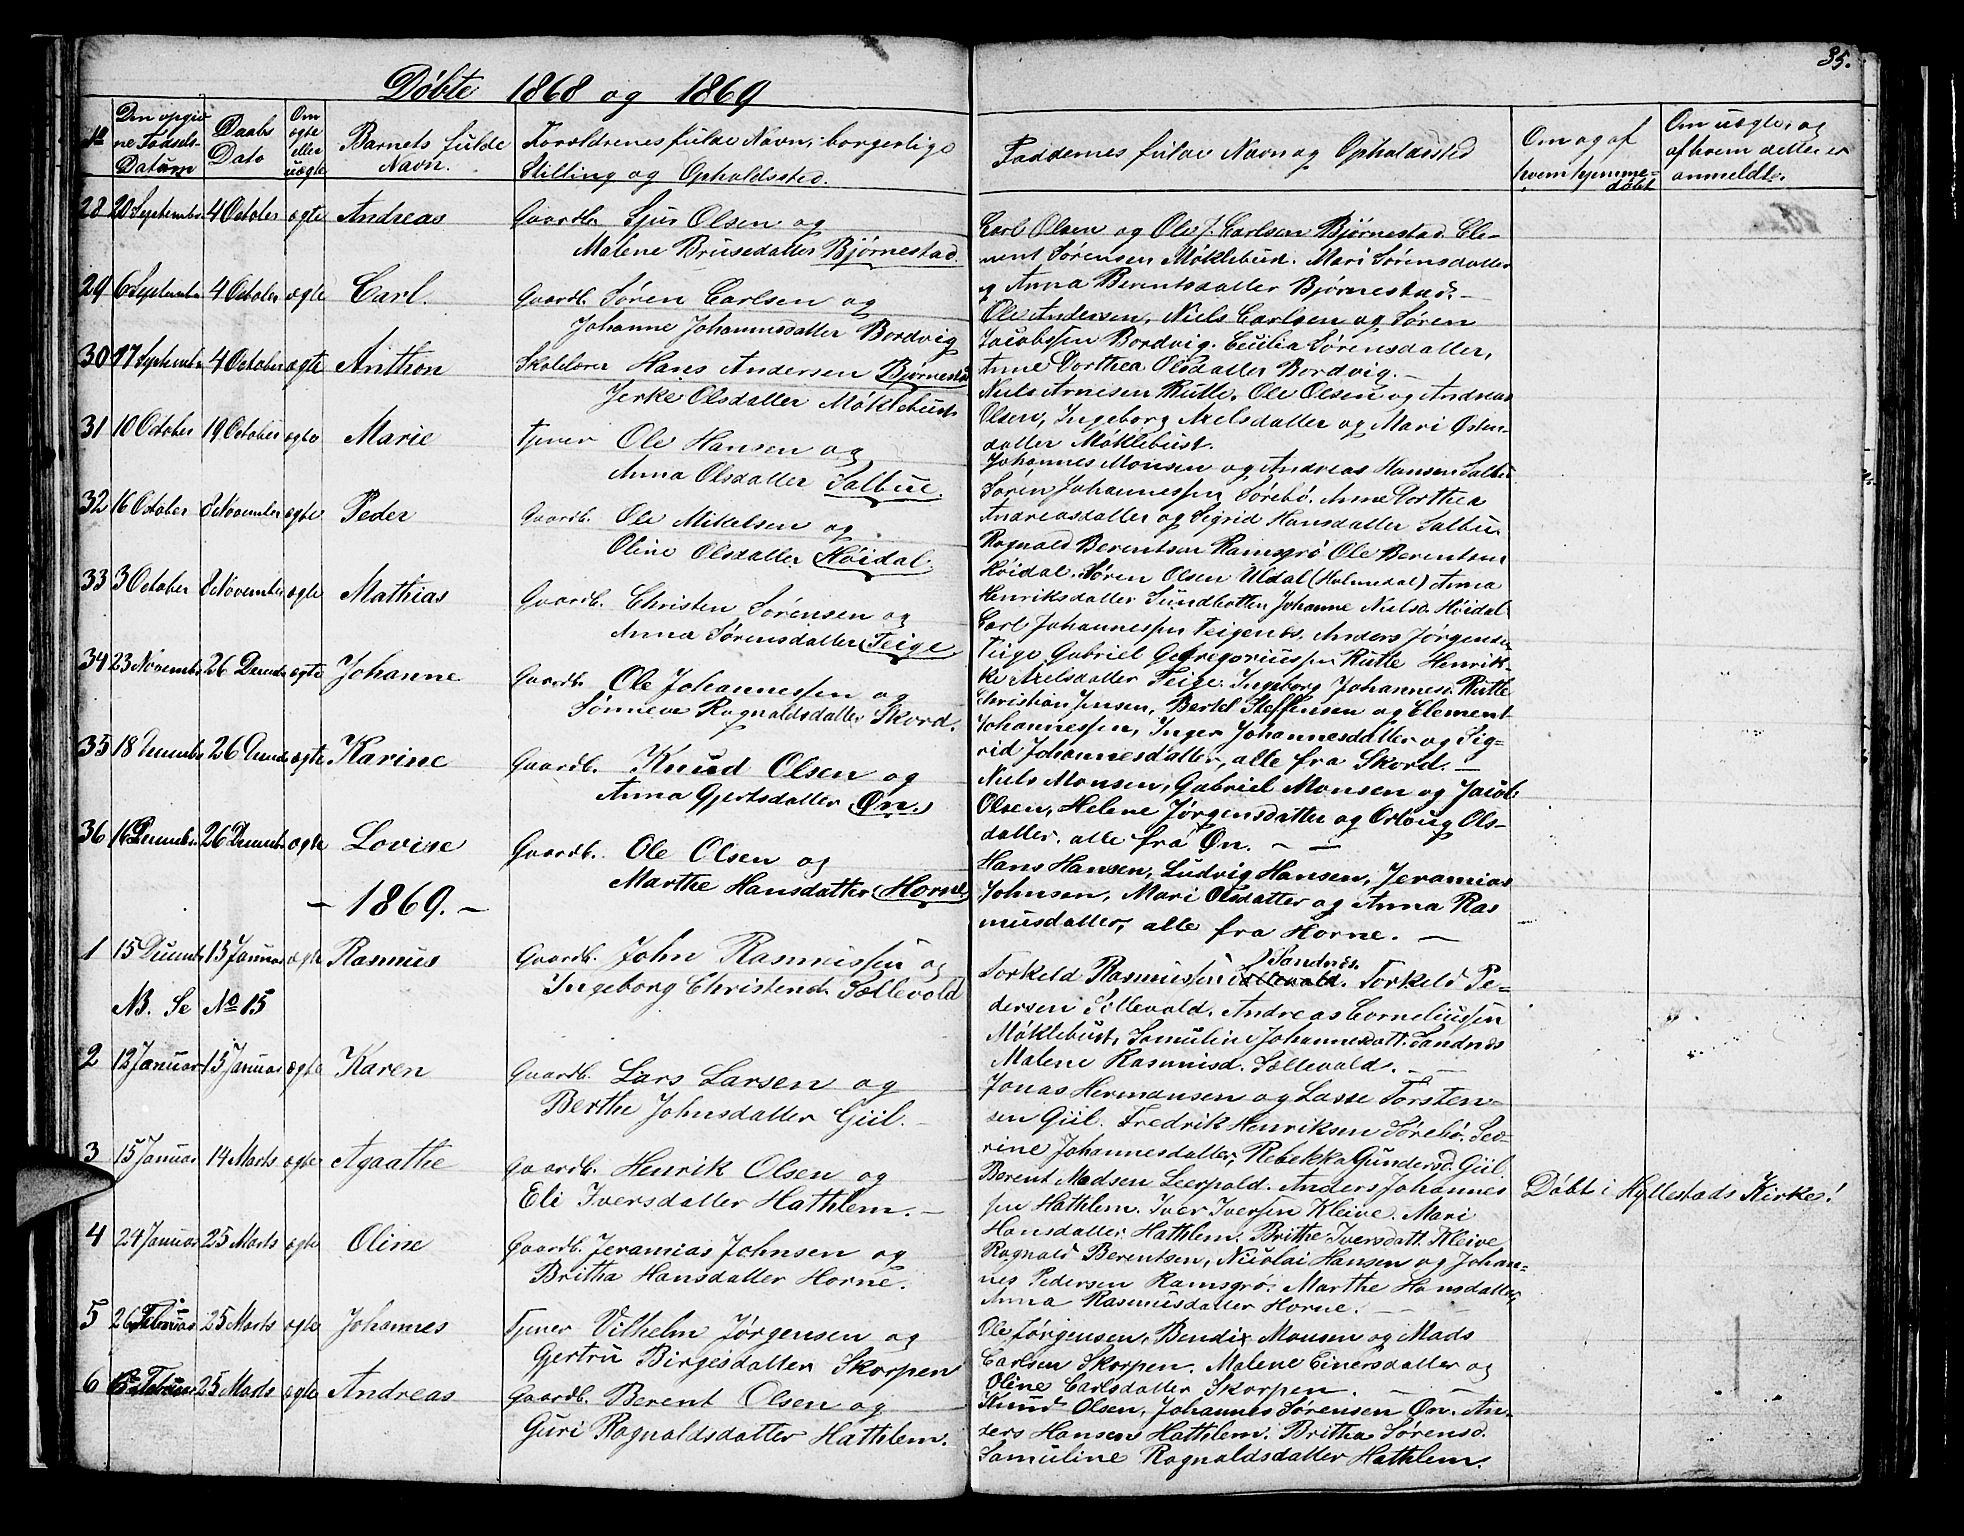 35.
Døbte 1868 og 1869
No
Den opgiv
ne Fødsels-
Datum
Daabs
Dato
Om
ægte
eller
uægte
Barnets fulde
Navn.
Forældrenes fulde Navn, borgerlige
Stilling og Opholdssted.
Faddernes fulde Navn og Opholdssted
Om og af
hvem hjemme-
døbt
Om uægte, og
af hvem dette er
anmeldt.
28 20 Septembr 4 October ægte Andreas Gaardb. Sjur Olsen og
Malene Brusedatter Bjørnestad.
Carl Olsen og Ole J. Carlsen Bjørnestad. Cle-
ment Sørensen Møklebust. Mari Sørensdatter
og Anna Berentsdatter Bjørnestad. -
29 6 Septembr 4 October ægte Carl. Gaardb. Søren Carlsen og
Johanne Johannesdatter Bordvig
Ole Andersen, Niels Carlsen og Søren
Jacobssen Bordvig. Cecilia Sørensdatter,
Anne Dorthea Olsdatter Bordvig. -
30 17 Septembr 4 October ægte Anthon Skolelærer Hans Andersen Bjørnestad
Jerke Olsdatter Møklebust
Niels Arnesen Rutle, Ole Olsen og Andreas
Olsen, Ingeborg Axelsdatter og Mari Østen-
datter Møklebust.
31 10 October 19 October ægte Marie Tjener Ole Hansen og
Anna Olsdatter Salbue.
Johannes Monsen og Andreas Hansen Salbu
Søren Johannessen Sørebø. Anne Dorthea
Andreasdatter og Sigrid Hansdatter Salbu.
32 16 October 8 November ægte Peder Gaardb. Ole Mikelsen og
Oline Olsdatter Høidal.
Ragnald Berentsen Ramsgrø Ole Berentsen
Høidal. Søren Olsen Uldal (Holmedal) Anna
Henriksdatter Sundbotten, Johanne Nielsd. Høidal
33 3 October 8 November ægte Mathias Gaardb. Christen Sørensen og
Anna Sørensdatter Teige
Carl Johannessen Teigenes. Anders Jørgensen
Teige Gabriel Gregoriussen Rutle Henrik-
ke Axelsdatter Teige. Ingeborg Johannesd. Rutle
34 23 Novembr 26 Decembr ægte Johanne Gaardb. Ole Johannessen og
Sønneve Ragnaldsdatter Skord.
Christian Jensen, Bertel Steffensen og Clement
Johannessen, Inger Johannesdatter og Sig-
rid Johannesdatter, alle fra Skord. -
35 18 Decembr 26 Decembr ægte Karine Gaardb. Knud Olsen og
Anna Gjertsdatter Øn.
Niels Monsen, Gabriel Monsen og Jacob
Olsen, Helene Jørgensdatter og Orloug Ols-
datter. alle fra Øn. - -
36 16 Decembr 26 Decembr ægte Lovise Gaardb. Ole Olsen og
Marthe Hansdatter Horne
Hans Hansen, Ludvig Hansen, Jeramias
Johnsen, Mari Olsdatter og Anna Ras
musdatter, alle fra Horne. -
- 1869. -
1 15 Decembr 13 Januar ægte Rasmus Gaardb. John Rasmussen og
Ingeborg Christend. Sellevold
NB. Se No 15
Sandnes
Torkeld Rasmussen Sellevold. Torkeld Pe-
dersen Sellevold. Andreas Corneliussen
Møklebust, Samuline Johannesdatt. Sandnes
Malene Rasmusd. Sellevold. - -
2 12 Januar 13 Januar ægte Karen Gaardb. Lars Larsen og
Berthe Johnsdatter Giil. -
Jonas Hermansen og Lasse Torsten-
sen Giil. Fredrik Henriksen Sørebø. Sev-
rine Johannesdatter, Rebekka Gundersd. Giil
3 15 Januar 14 Marts ægte Agaathe Gaardb. Henrik Olsen og
Eli Iversdatter Hathlem. -
Berent Madsen Leerpold. Anders Johannes
sen Hathlem. Iver Iversen Kleive. Mari
Hansdatter Hathlem. Brithe Iversdatt. Kleive
Døbt i Hyllestads Kirke!
4 24 Januar 25 Marts ægte Oline Gaardb. Jeramias Johnsen og
Britha Hansdatter Horne.
Ragnald Berentsen, Nicolai Hansen og Johan-
nes Pedersen Ramsgrø. Marthe Hansdatter,
Anna Rasmusdatter Horne. - -
5 26 Februar 25 Marts ægte Johannes Tjener Vilhelm Jørgensen og
Gertru Birgesdatter Skorpen
Ole Jørgensen, Bendix Monsen og Mads
Carlsen Skorpen. Malene Einersdatter og
Oline Carlsdatter Skorpen. - -
6 Februar 25 Marts ægte Andreas Gaardb. Berent Olsen og
Guri Ragnaldsdatter Hathlem.
Knud Olsen, Johannes Sørensen Øn. An-
ders Hansen Hathlem. Britha Sørensd.
Samuline Ragnaldsdatter Hathlem.